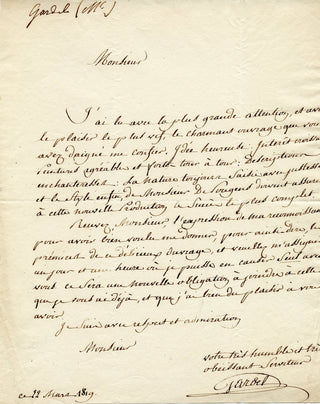 Gardel (Mr.)
Monsieur
J'ai lu avec la plus grande attention, et avec
le plaisir le plus vif, le charmant ouvrage que vous
avez daigné me confier. Idée heureuse. Interêt
Peinture agréable et forte tour à tour. Descriptions
enchanteresses. La nature toujours Saisie avec
et le Style enfin, de Monsieur de doivent
à cette nouvelle Production, le Succès le plus complet.
Recevez, Monsieur, l'expression de ma reconnaissance
pour avoir bien voulu me donner, pour ainsi dire, les
prémices de ce délicieux ouvrage, et veuillez m'assigner
un jour et une heure où je puisse en causer Seul avec
vous ce Sera une nouvelle obligation à joindre à celle
que je vous ai déjà, et que j'ai bien du plaisir à vous
avoir.
Je Suis avec respect et admiration
Monsieur
votre très humble et très
obeissant Serviteur
Gardel
ce 22 Mars 1819.